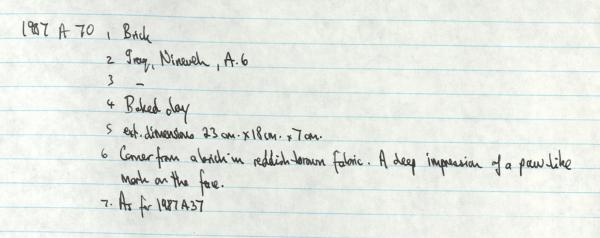 1987 A 70 1 Brick
2 Iraq, Nineveh, A.6
3 –
4 Baked clay
5 ext. dimensions 23 cm. x 18 cm. x 7 cm.
6 Corner from a brick in reddish-brown fabric. A deep impression of a paw-like
mark on the face.
7. As for 1987A37